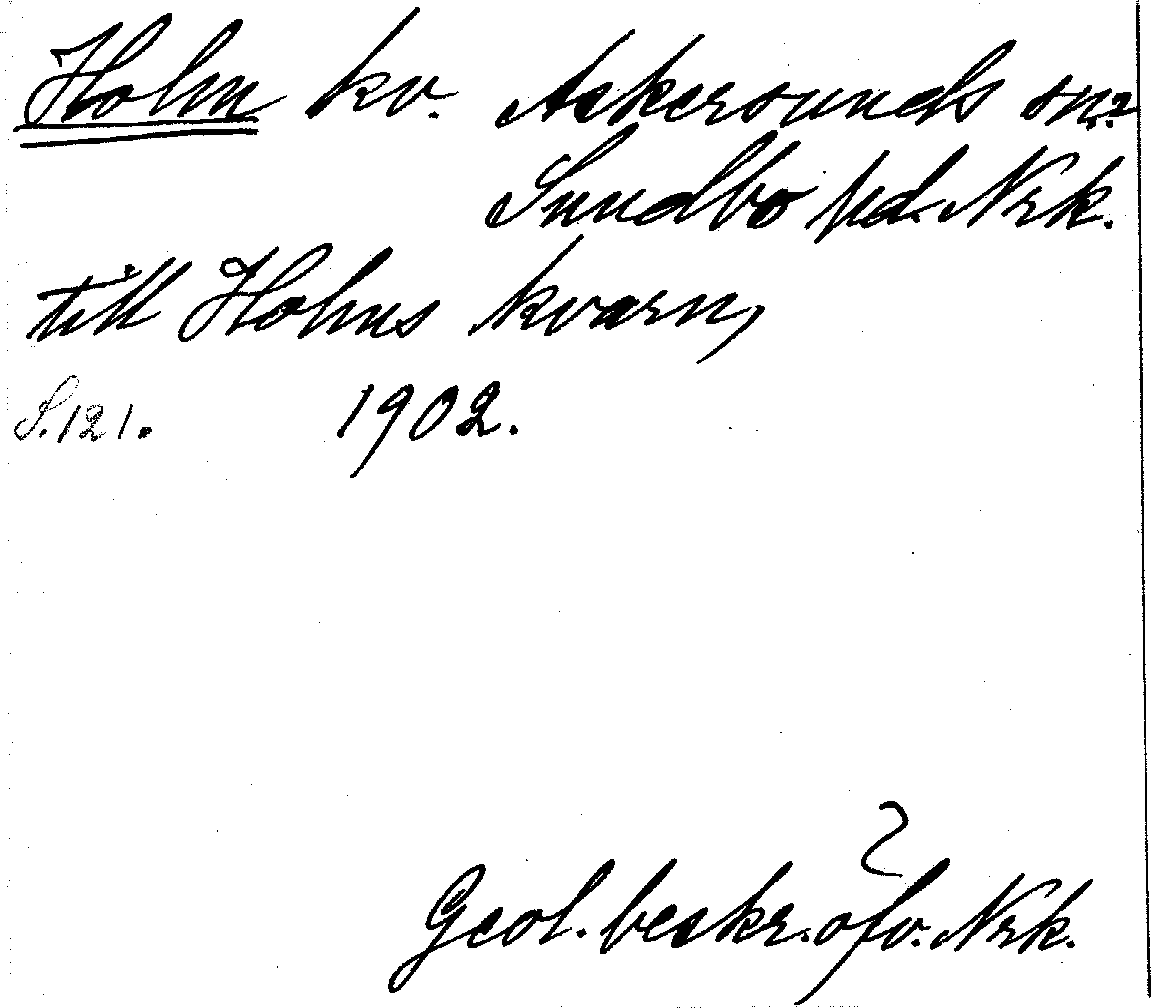 Holm kv. Askersunds sn?
Sundbo hd. Nrk.
till Holms kvarn,
S. 121. 1902.
Geol. beskr. öfv. Nrk.